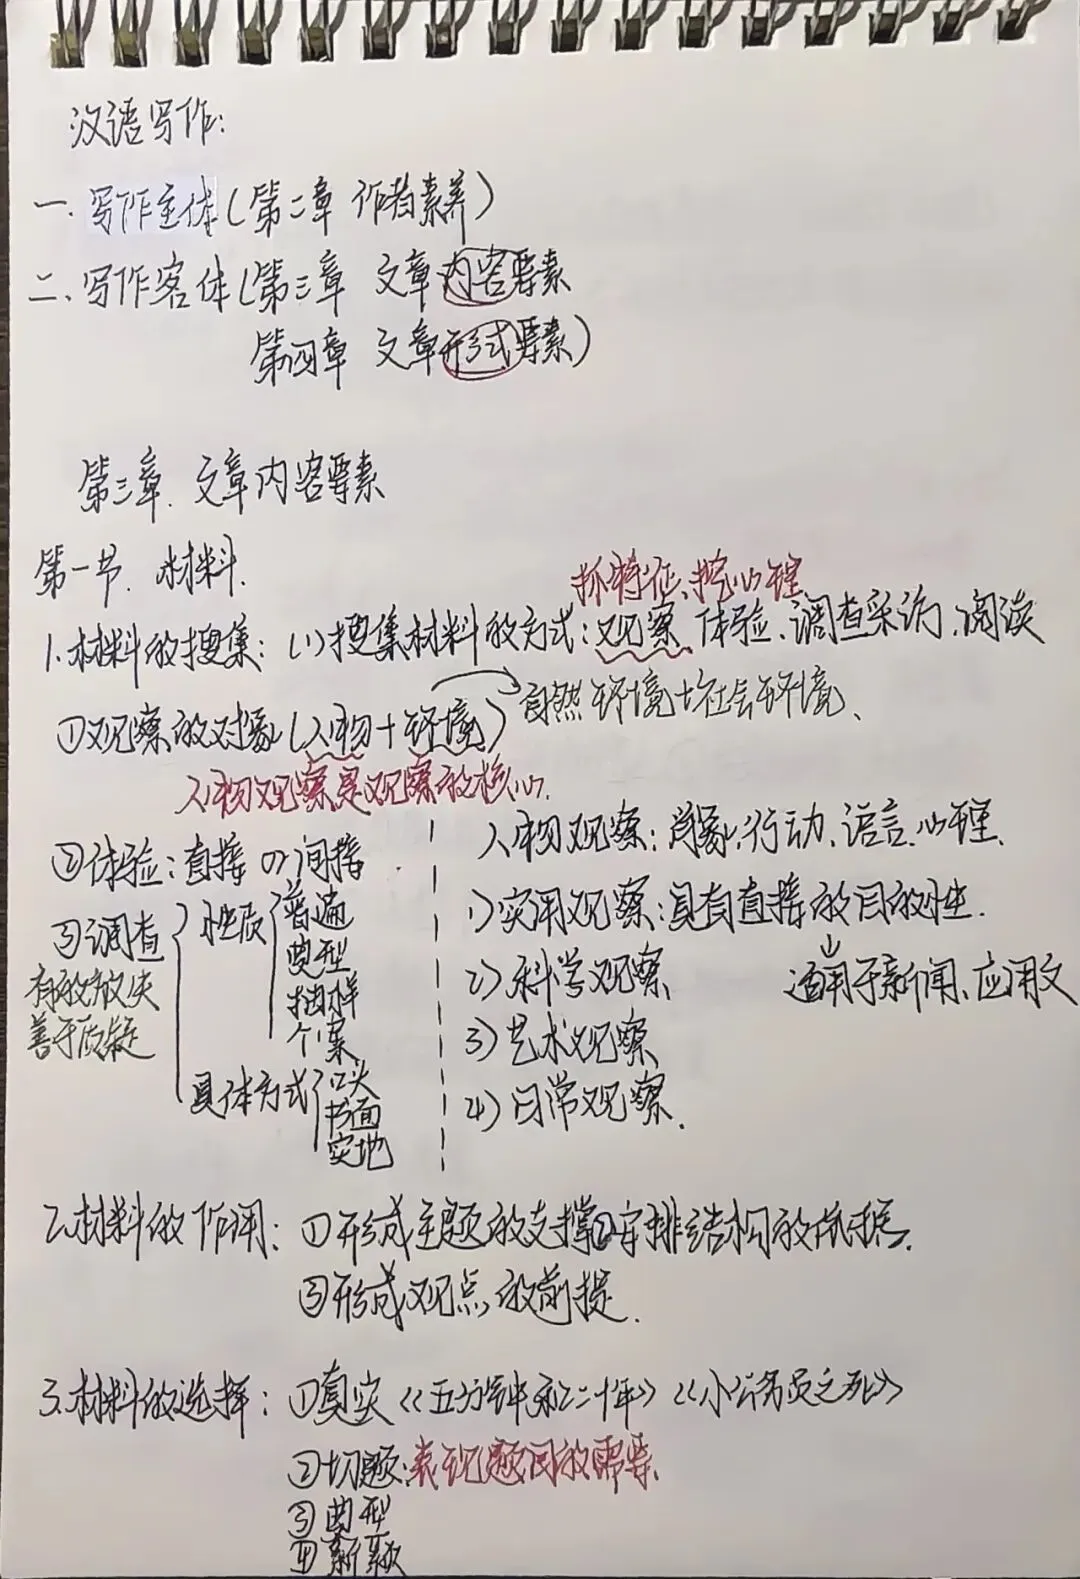 汉语写作:
一、写作主体(第二章 作者素养)
二、写作客体(第三章 文章内容要素
第四章 文章形式要素)
第三章. 文章内容要素
第一节. 材料.
抓特征、挖心理
1.材料的搜集: (1)搜集材料的方式:观察、体验、调查采访、阅读
①观察的对象(人物+环境) 自然环境+社会环境、
人物观察是观察的核心.
人物观察:肖像,行动、语言、心理.
②体验:直接 or 间接
1)实用观察:具有直接的目的性.
↓
适用于新闻、应用文
2)科学观察
3)艺术观察
4)日常观察.
③调查
有的放矢
善于质疑
性质
普遍
典型
抽样
个案
具体方式
口头
书面
实地
2.材料的作用: ①形成主题的支撑②安排结构的依据.
③形成观点的前提.
3.材料的选择: ①真实《五分钟和二十年》《小公务员之死》
②切题:表现题目的需要.
③典型
④新颖